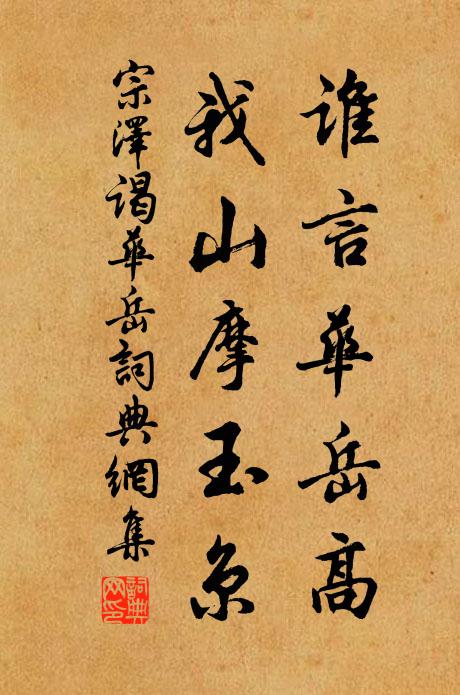 誰言華岳高
我山摩玉京
宗澤謁華岳詞典網集
詞典
网印